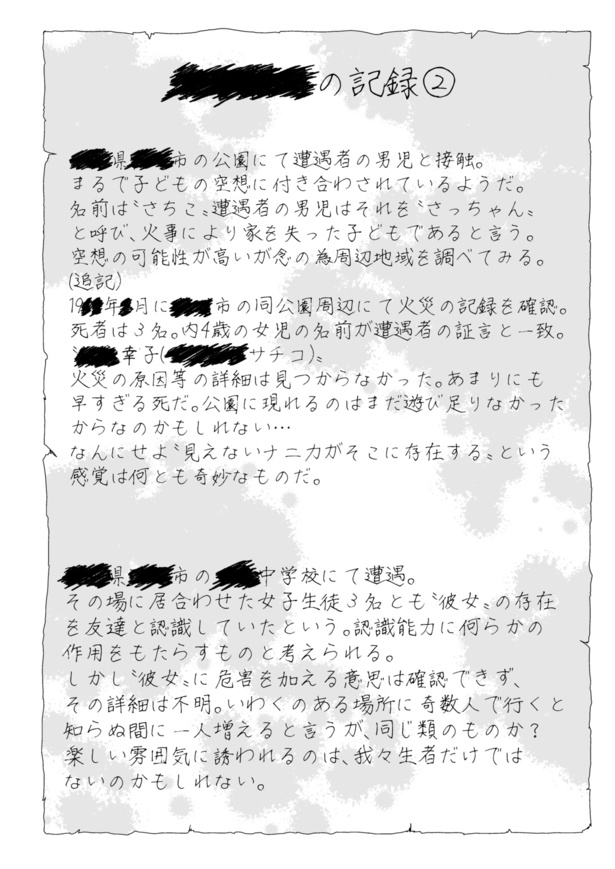 の記録②
県 市の公園にて遭遇者の男児と接触。
まるで子どもの空想に付き合わされているようだ。
名前は〝さちこ〟遭遇者の男児はそれを〝さっちゃん〟
と呼び、火事により家を失った子どもであると言う。
空想の可能性が高いが念の為周辺地域を調べてみる。
(追記)
19 年 月に 市の同公園周辺にて火災の記録を確認。
死者は3名。内4歳の女児の名前が遭遇者の証言と一致。
〝 幸子( サチコ)〟
火災の原因等の詳細は見つからなかった。あまりにも
早すぎる死だ。公園に現れるのはまだ遊び足りなかった
からなのかもしれない…
なんにせよ〝見えないナニカがそこに存在する〟という
感覚は何とも奇妙なものだ。
県 市の 中学校にて遭遇。
その場に居合わせた女子生徒3名とも〝彼女〟の存在
を友達と認識していたという。認識能力に何らかの
作用をもたらすものと考えられる。
しかし〝彼女〟に危害を加える意思は確認できず、
その詳細は不明。いわくのある場所に奇数人で行くと
知らぬ間に一人増えると言うが、同じ類のものか?
楽しい雰囲気に誘われるのは、我々生者だけでは
ないのかもしれない。